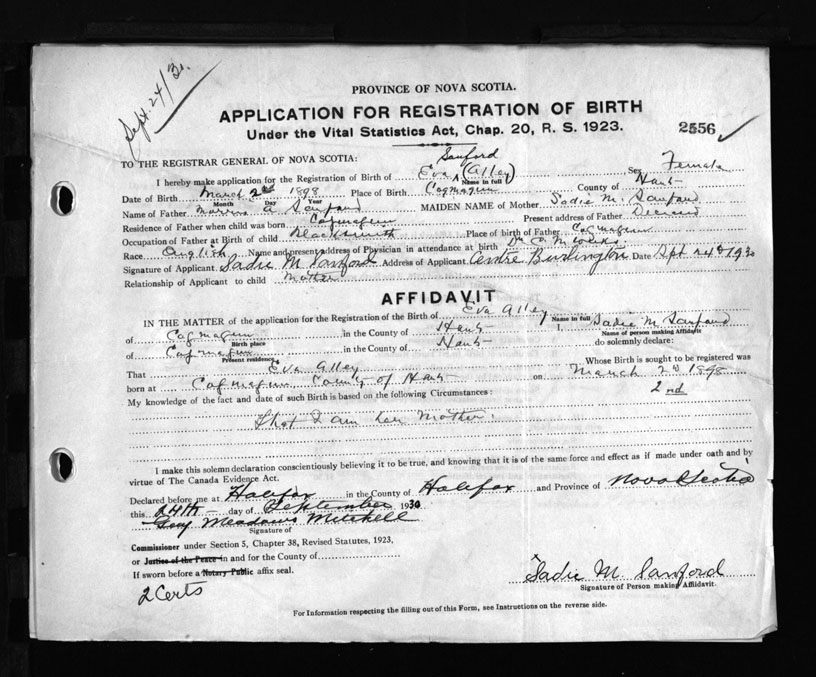 Sept. 24/30.
PROVINCE OF NOVA SCOTIA.
APPLICATION FOR REGISTRATION OF BIRTH
Under the Vital Statistics Act, Chap. 20, R. S. 1923.
2556
TO THE REGISTRAR GENERAL OF NOVA SCOTIA:
Sanford
I hereby make application for the Registration of Birth of Eva (Alley) Sex Female
Name in full
Date of Birth March 2nd 1898 Place of Birth Cogmagun County of Hants
Month Day Year
Name of Father A Sanford MAIDEN NAME of Mother Sadie M. Sanford
Residence of Father when child was born Cogmagun Present address of Father Deceased
Occupation of Father at Birth of child Blacksmith Place of birth of Father Cogmagun
Race English Name and present address of Physician in attendance at birth Dr
Signature of Applicant Sadie M Sanford Address of Applicant Centre Burlington Date Spt 24th 1930
Relationship of Applicant to child Mother
AFFIDAVIT
IN THE MATTER of the application for the Registration of the Birth of Eva Alley
Name in full
of Cogmagun in the County of Hants I, Sadie M. Sanford
Birth place Name of person making Affidavit
of Cogmagun in the County of Hants do solemnly declare:
Present residence
That Eva Alley Whose Birth is sought to be registered was
born at Cogmagun County of Hants on March 2nd 1898
2nd
My knowledge of the fact and date of such Birth is based on the following Circumstances:
That I am her Mother.
I make this solemn declaration conscientiously believing it to be true, and knowing that it is of the same force and effect as if made under oath and by
virtue of The Canada Evidence Act.
Declared before me at Halifax in the County of Halifax and Province of Nova Scotia
this 24th day of September 1930
Meadows Mitchell
Signature of
Commissioner under Section 5, Chapter 38, Revised Statutes, 1923,
or Justice of the Peace in and for the County of
If sworn before a Notary Public affix seal.
2 Certs
x Sadie M. Sanford
Signature of Person making Affidavit.
For Information respecting the filling out of this Form, see Instructions on the reverse side.